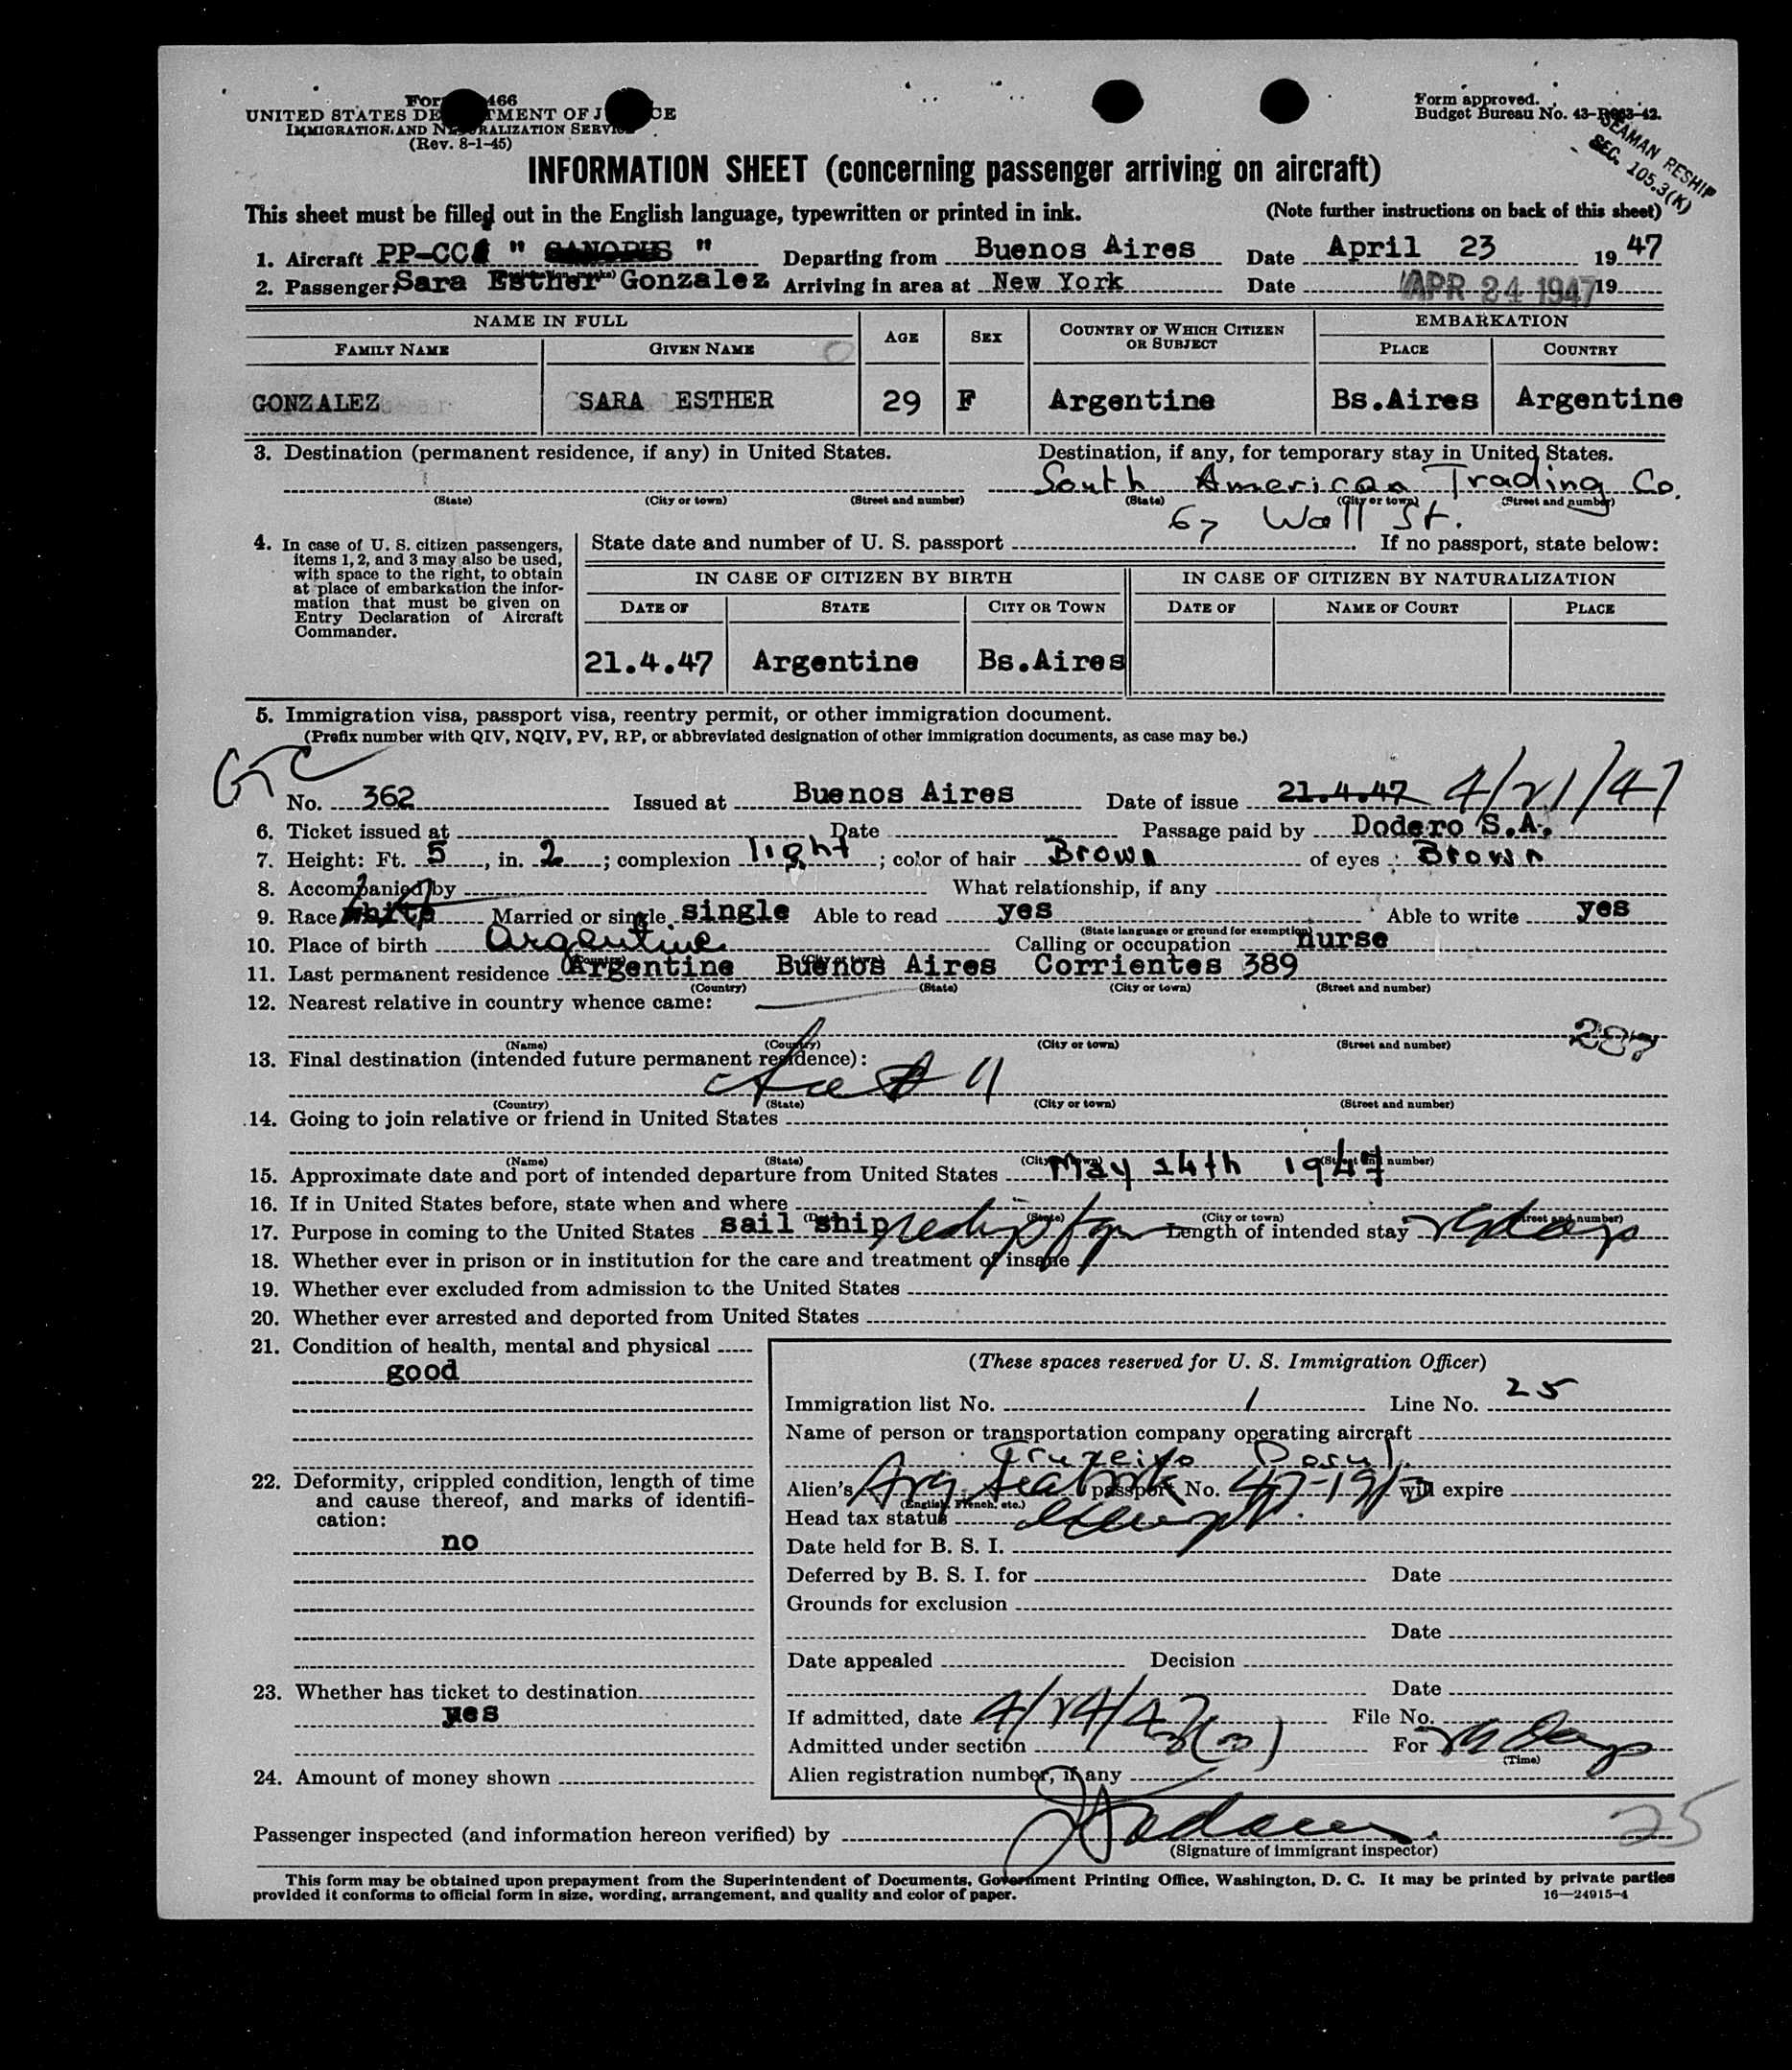 466
UNITED STATES
IMMIGRATION AND SERVICE
(Rev. 8-1-45)
Form approved.
Budget Bureau No.
SEAMAN RESHIP
SEC. 105.3(K)
INFORMATION SHEET (concerning passenger arriving on aircraft)
This sheet must be filled out in the English language, typewritten or printed in ink. (Note further instructions on back of this sheet)
1. Aircraft " " Departing from Buenos Aires Date April 23 1947
2. Passenger Sara Esther Gonzalez Arriving in area at New York Date APR 24 1947 19
NAME IN FULL AGE SEX COUNTRY OF WHICH CITIZEN OR SUBJECT EMBARKATION
FAMILY NAME GIVEN NAME PLACE COUNTRY
GONZALEZ SARA ESTHER 29 F Argentine Bs.Aires Argentine
3. Destination (permanent residence, if any) in United States. Destination, if any, for temporary stay in United States.
South American Trading Co.
(State) (City or town) (Street and number) (State) (City or town) (Street and number)
67 Wall St.
4. In case of U. S. citizen passengers, items 1, 2, and 3 may also be used, with space to the right, to obtain at place of embarkation the information that must be given on Entry Declaration of Aircraft Commander.
State date and number of U. S. passport If no passport, state below:
IN CASE OF CITIZEN BY BIRTH IN CASE OF CITIZEN BY NATURALIZATION
DATE OF STATE CITY OR TOWN DATE OF NAME OF COURT PLACE
21.4.47 Argentine Bs.Aires
5. Immigration visa, passport visa, reentry permit, or other immigration document.
(Prefix number with QIV, NQIV, PV, RP, or abbreviated designation of other immigration documents, as case may be.)
No. 362 Issued at Buenos Aires Date of issue 21.4.47 4/21/47
6. Ticket issued at Date Passage paid by Dodero S.A.
7. Height: Ft. 5, in. 2; complexion light; color of hair Brown of eyes Brown
8. Accompanied by What relationship, if any
9. Race Married or single single Able to read yes Able to write yes
(State language or ground for exemption)
10. Place of birth Argentine Calling or occupation nurse
11. Last permanent residence Argentine Buenos Aires Corrientes 389
(Country) (State) (City or town) (Street and number)
12. Nearest relative in country whence came:
(Name) (Country) (City or town) (Street and number)
13. Final destination (intended future permanent residence):
(Country) (State) (City or town) (Street and number)
14. Going to join relative or friend in United States
(Name) (State) (City or town) (Street and number)
15. Approximate date and port of intended departure from United States May 24th 1947
16. If in United States before, state when and where
(Date) (State) (City or town) (Street and number)
17. Purpose in coming to the United States sail ship Length of intended stay
18. Whether ever in prison or in institution for the care and treatment of insane
19. Whether ever excluded from admission to the United States
20. Whether ever arrested and deported from United States
21. Condition of health, mental and physical
good
22. Deformity, crippled condition, length of time and cause thereof, and marks of identification:
no
23. Whether has ticket to destination
yes
24. Amount of money shown
(These spaces reserved for U. S. Immigration Officer)
Immigration list No. 1 Line No. 25
Name of person or transportation company operating aircraft
Alien's Arg passport No. will expire
(English, French, etc.)
Head tax status
Date held for B. S. I.
Deferred by B. S. I. for Date
Grounds for exclusion
Date
Date appealed Decision
Date
If admitted, date 4/24/47 File No.
Admitted under section For
(Time)
Alien registration number, if any
Passenger inspected (and information hereon verified) by 25
(Signature of immigrant inspector)
This form may be obtained upon prepayment from the Superintendent of Documents, Government Printing Office, Washington, D. C. It may be printed by private parties
provided it conforms to official form in size, wording, arrangement, and quality and color of paper. 16—24915-4